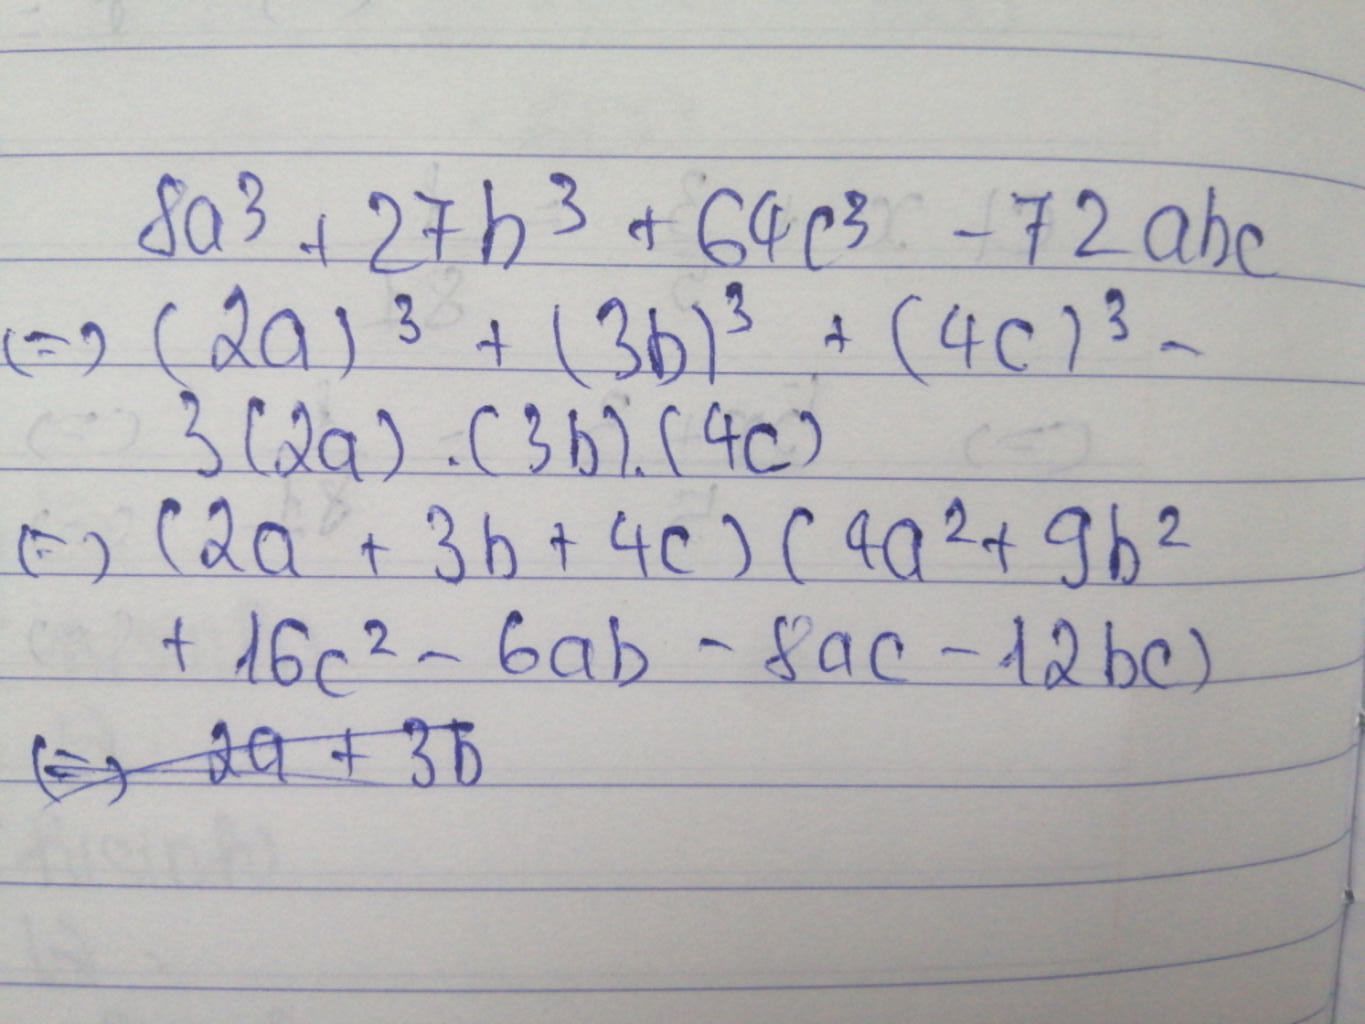 8a³ + 27b³ + 64c³ - 72abc
(=) (2a)³ + (3b)³ + (4c)³ -
3(2a).(3b).(4c)
(=) (2a + 3b + 4c) (4a² + 9b²
+ 16c² - 6ab - 8ac - 12bc)
(=) 2a + 3b